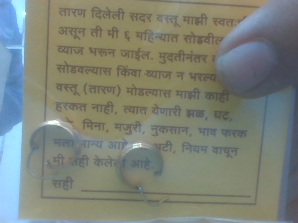 तारण दिलेली सदर वस्तू माझी स्वतः
असून ती मी ६ महिन्यात सोडवील
व्याज भरून जाईल. मुदतीनंतर
सोडवल्यास किंवा व्याज न भरल्या
वस्तू (तारण) मोडल्यास माझी काही
हरकत नाही, त्यात येणारी झळ, घट,
मिना, मजुरी, नुकसान, भाव फरक
मान्य आहे नियम वाचून
मी सही केलेली आहे
सही